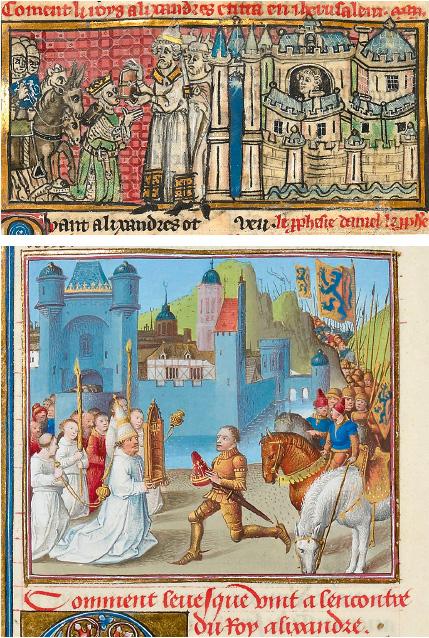 Coment li roys alixandres entra en iherusalem
Quant alixandres ot veu le pphesie daniel le pphe
Comment leuesque vint a lencontre
du Roy alixandre.